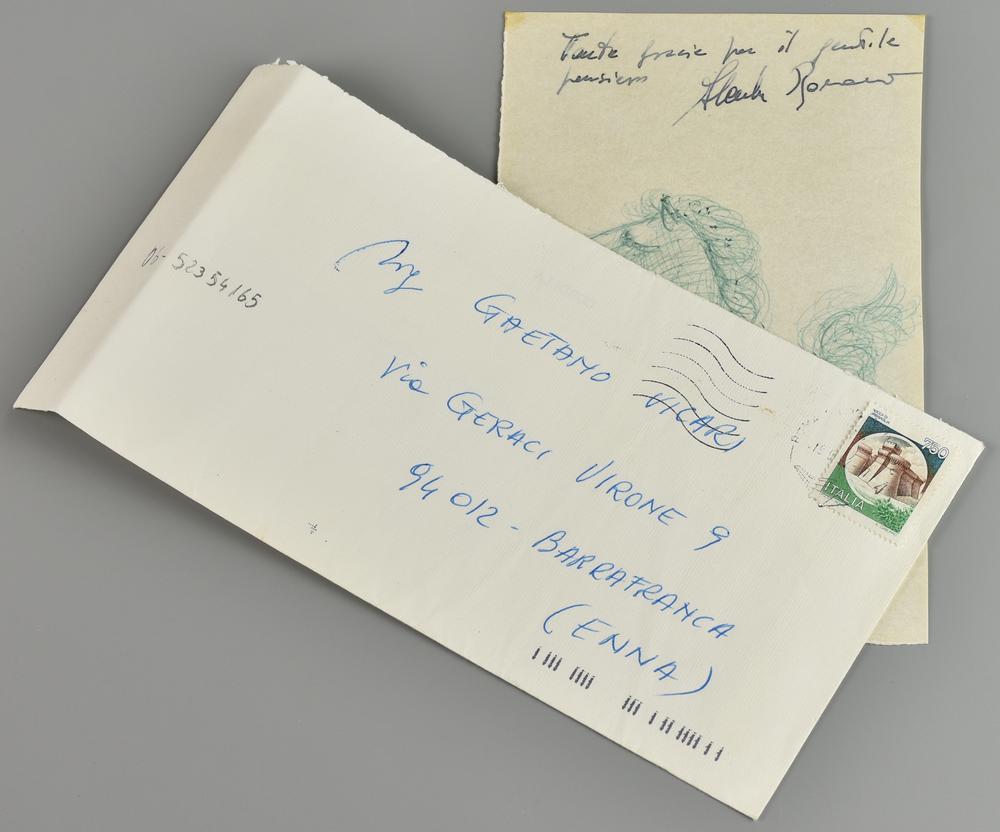 Tante grazie per il gentile
pensiero
06- 52354165
GAETANO VICARI
Via GERACI VIRONE 9
94012 - BARRAFRANCA
(ENNA)
750
ITALIA